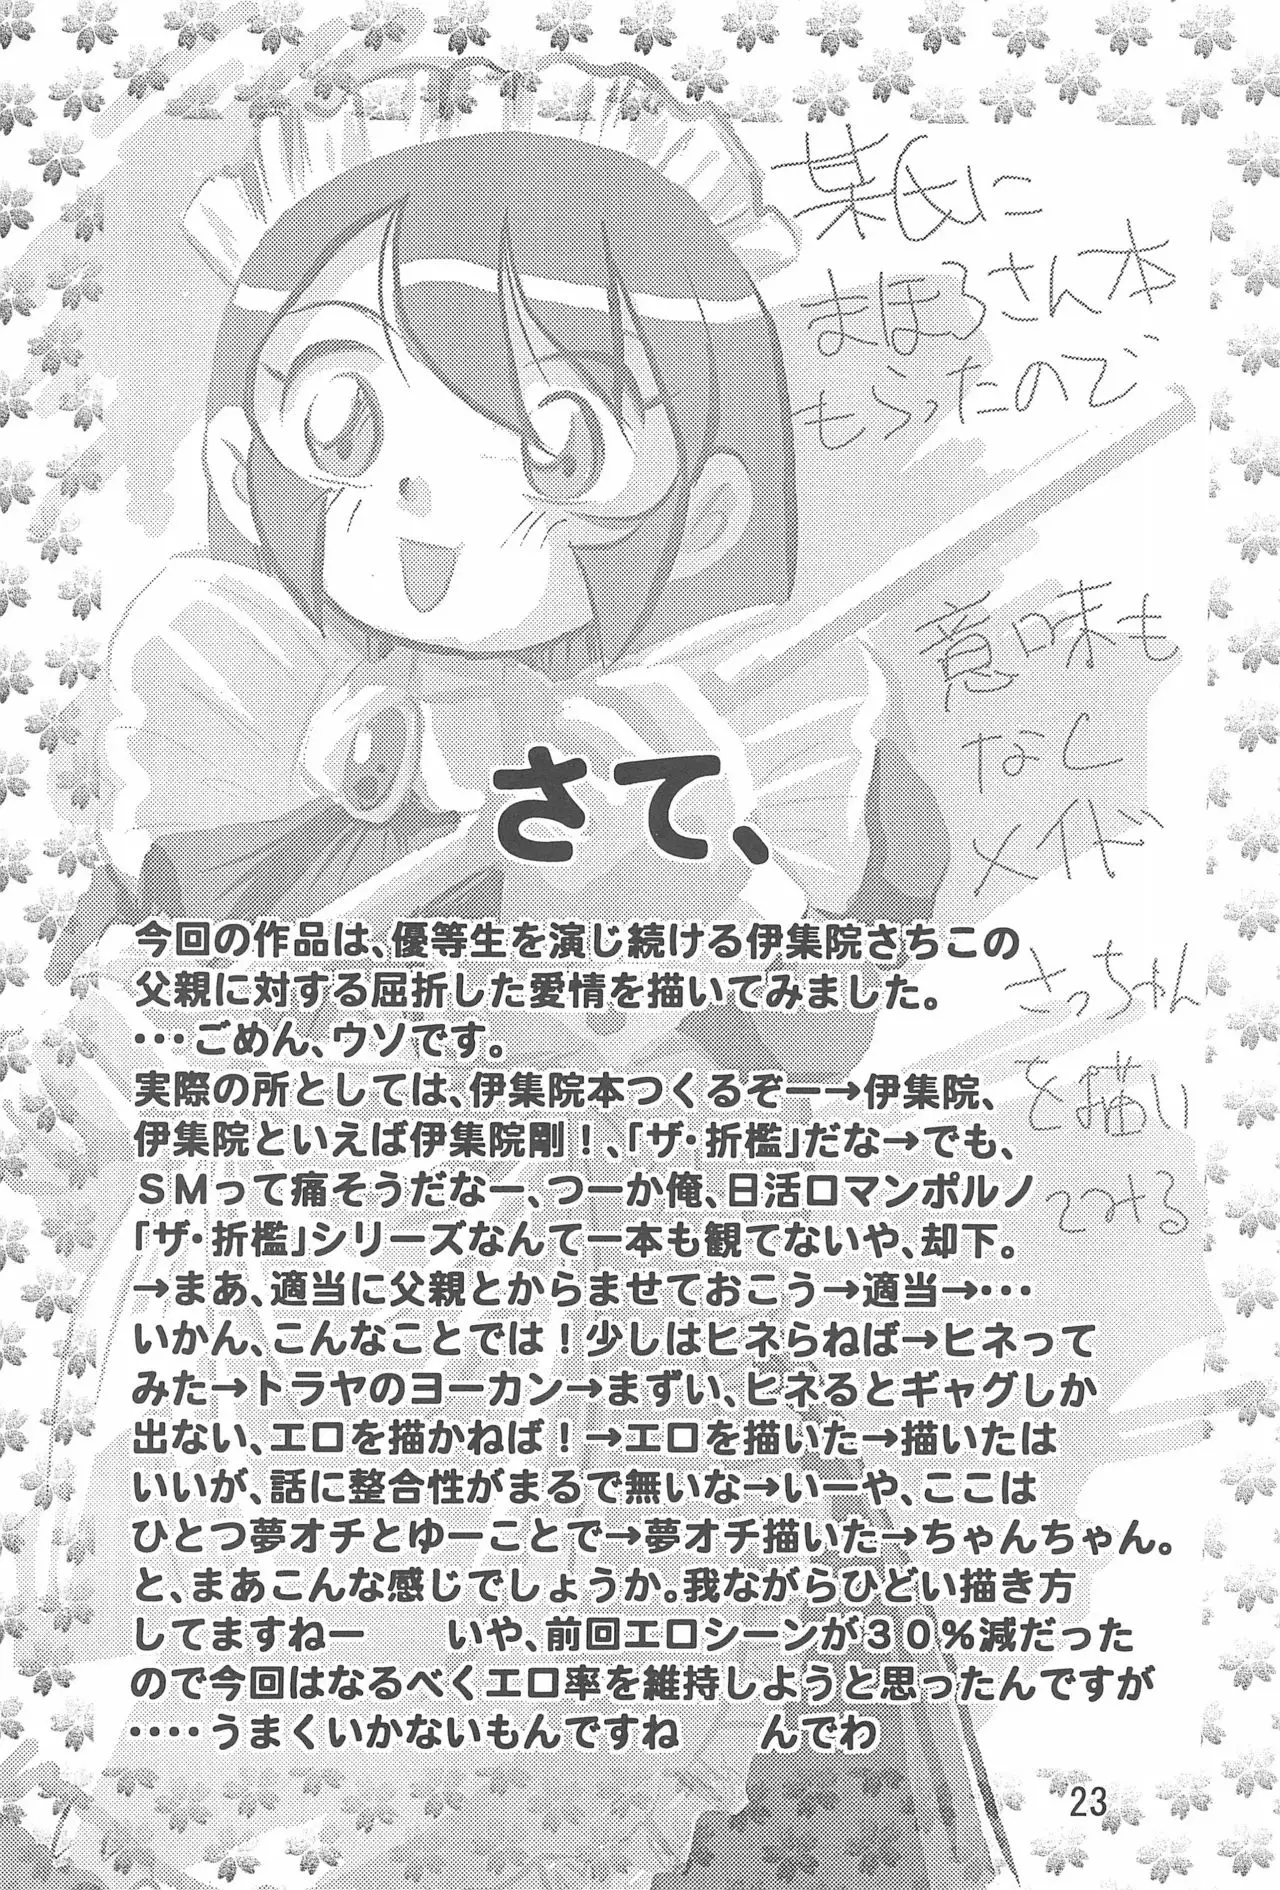 某氏に
まほろさん本
もらったので
意味も
なく
メイド
さっちゃん
を描い
てみる
さて、
今回の作品は、優等生を演じ続ける伊集院さちこの
父親に対する屈折した愛情を描いてみました。
・・・ごめん、ウソです。
実際の所としては、伊集院本つくるぞー→伊集院、
伊集院といえば伊集院剛！、「ザ・折檻」だな→でも、
ＳＭって痛そうだなー、つーか俺、日活ロマンポルノ
「ザ・折檻」シリーズなんて一本も観てないや、却下。
→まあ、適当に父親とからませておこう→適当→・・・
いかん、こんなことでは！少しはヒネらねば→ヒネって
みた→トラヤのヨーカン→まずい、ヒネるとギャグしか
出ない、エロを描かねば！→エロを描いた→描いたは
いいが、話に整合性がまるで無いな→いーや、ここは
ひとつ夢オチとゆーことで→夢オチ描いた→ちゃんちゃん。
と、まあこんな感じでしょうか。我ながらひどい描き方
してますねー　　いや、前回エロシーンが３０％減だった
ので今回はなるべくエロ率を維持しようと思ったんですが
・・・・うまくいかないもんですね　　んでわ
23